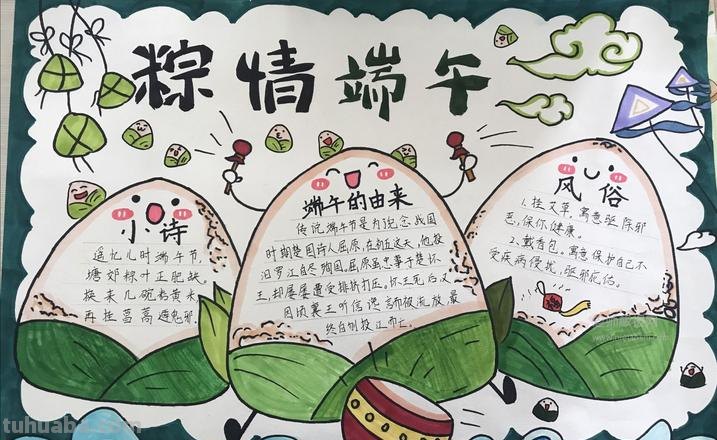 粽情端午
小诗
遥忆儿时端午节,
塘郊粽叶正肥缺。
换来几碗粉黄米,
再挂菖蒿避鬼邪.
端午的由来
传说端午节是为纪念战国
时期楚国诗人屈原,在初五这天,他投
汨罗江自尽殉国。屈原虽忠事于楚怀
王,却屡屡遭受排挤打压。怀王死后又
因顷襄王听信谗 被流放,最
终自刎投江而亡.
风俗
1.挂艾草,寓意驱除邪
恶,保你健康.
2.戴香包,寓意保护自己不
受疾病侵扰,驱邪庇佑.
tuhuaba.com